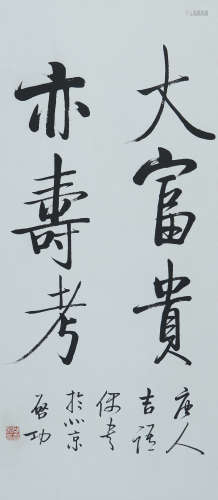 大富貴
亦壽考
唐人
吉語
偶書
於北京
啟功